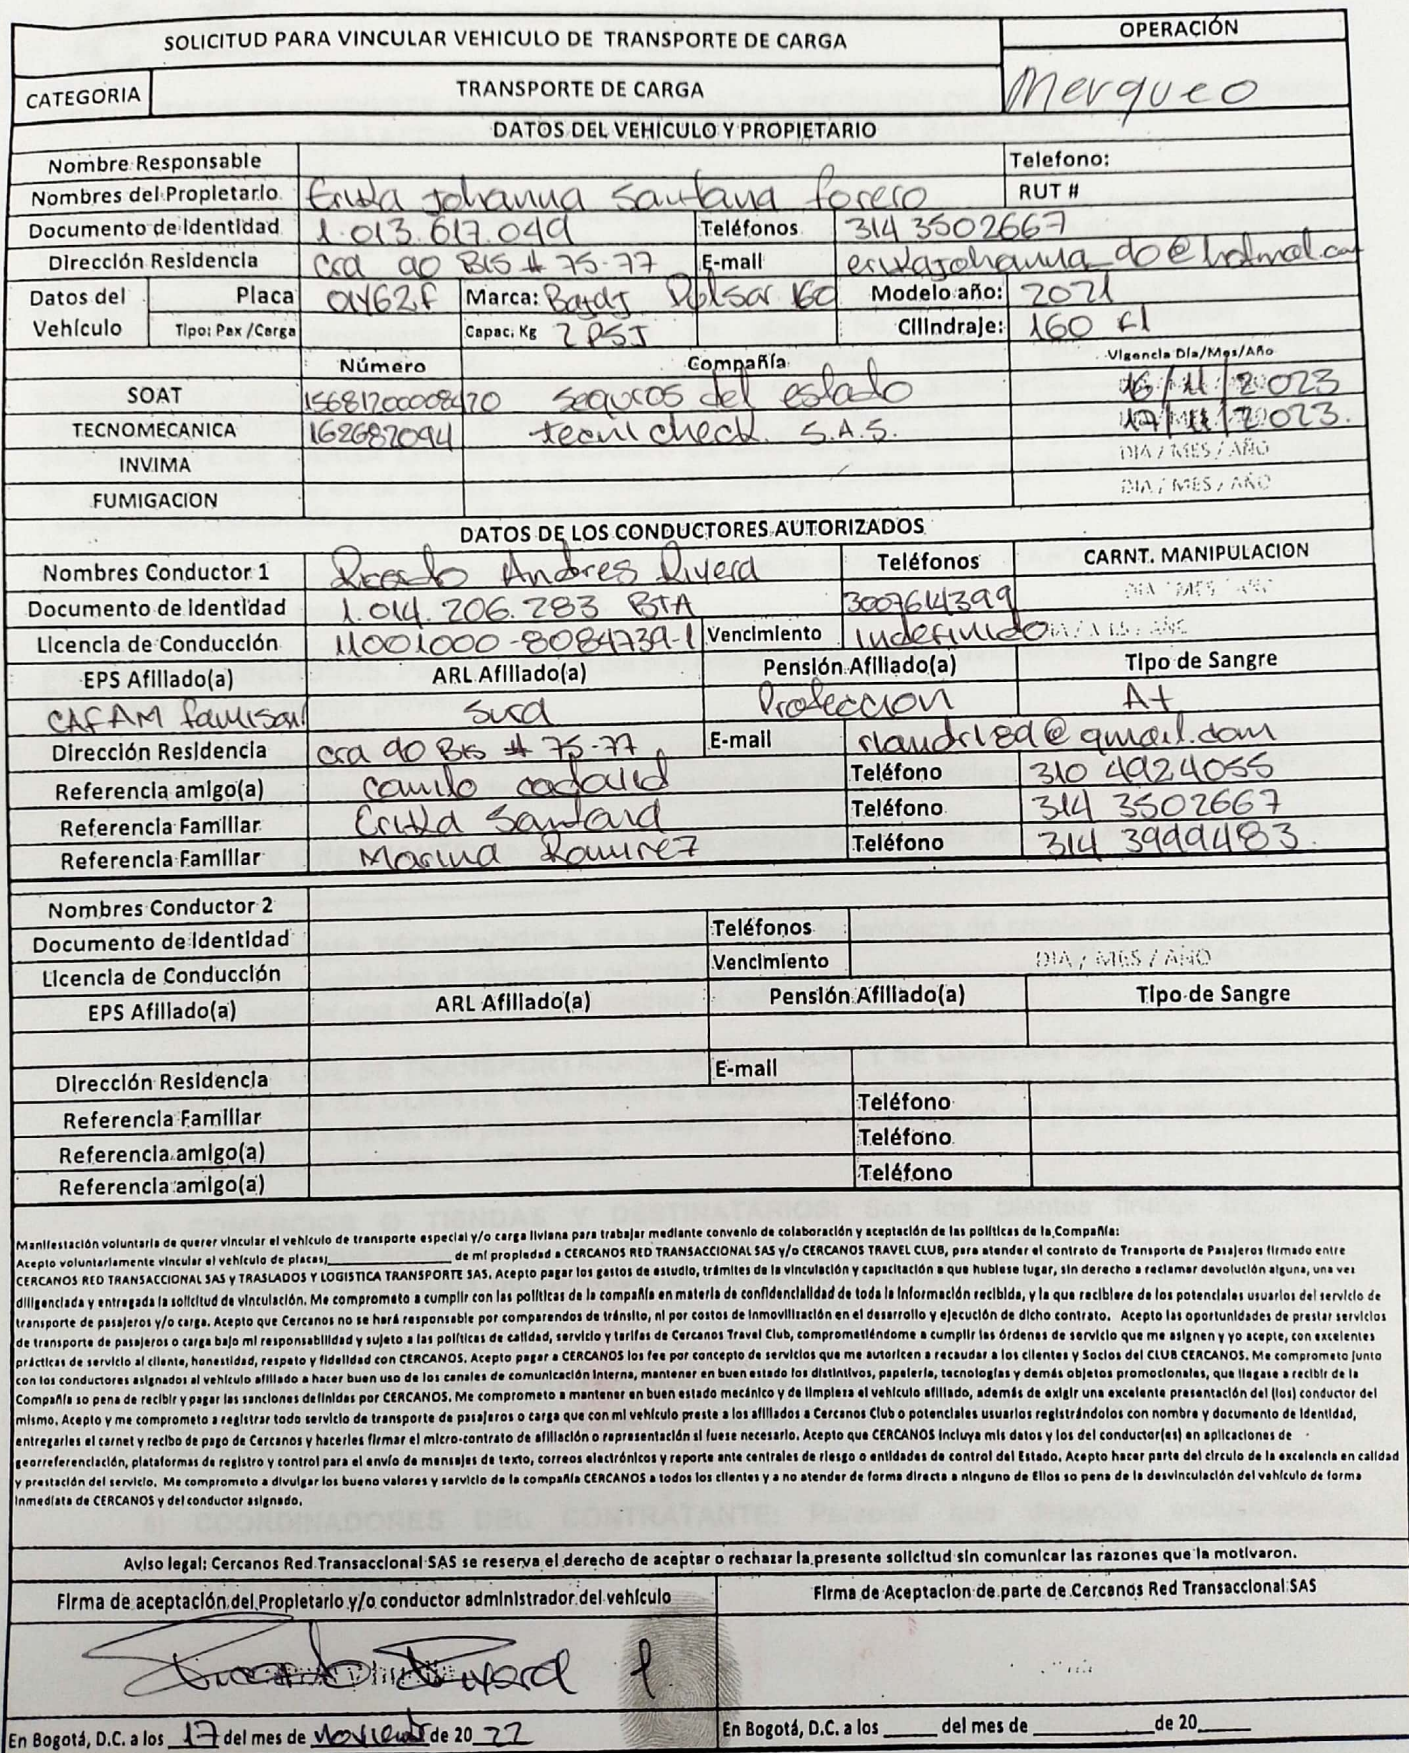 SOLICITUD PARA VINCULAR VEHICULO DE TRANSPORTE DE CARGA
OPERACIÓN
CATEGORIA TRANSPORTE DE CARGA Merqueo
DATOS DEL VEHICULO Y PROPIETARIO
Nombre Responsable Telefono:
Nombres del Propietario Erika Johanna Santana forero RUT #
Documento de Identidad 1.013.617.049 Teléfonos 314 3502667
Dirección Residencia cra 90 BIS # 75-77 E-mail erikajohanna_do@hotmail.com
Datos del Vehículo Placa OIY62F Marca: Bajaj Pulsar 160 Modelo año: 2021
Tipo: Pax /Carga Capac. Kg 2 PSJ Cilindraje: 160 FI
Número Compañía Vigencia Día/Mes/Año
SOAT 15681200008420 seguros del estado 16/11/2023
TECNOMECANICA 162687094 tecnicheck S.A.S. 17/11/2023.
INVIMA DIA / MES / AÑO
FUMIGACION DIA / MES / AÑO
DATOS DE LOS CONDUCTORES AUTORIZADOS
Nombres Conductor 1 Ricardo Andres Rivera Teléfonos CARNT. MANIPULACION
Documento de Identidad 1.014.206.283 BTA 3007614399 DIA / MES / AÑO
Licencia de Conducción 11001000-8084739-1 Vencimiento Indefinido DIA / MES / AÑO
EPS Afiliado(a) ARL Afiliado(a) Pensión Afiliado(a) Tipo de Sangre
CAFAM famisanar Sura Proteccion A+
Dirección Residencia cra 90 Bis # 75-77 E-mail riandri8a@gmail.com
Referencia amigo(a) camilo cadavid Teléfono 310 4924055
Referencia Familiar Erika Santana Teléfono 314 3502667
Referencia Familiar Marina Ramirez Teléfono 314 3999483.
Nombres Conductor 2
Documento de Identidad Teléfonos
Licencia de Conducción Vencimiento DIA / MES / AÑO
EPS Afiliado(a) ARL Afiliado(a) Pensión Afiliado(a) Tipo de Sangre
Dirección Residencia E-mail
Referencia Familiar Teléfono
Referencia amigo(a) Teléfono
Referencia amigo(a) Teléfono
Manifestación voluntaria de querer vincular el vehículo de transporte especial y/o carga liviana para trabajar mediante convenio de colaboración y aceptación de las políticas de la Compañía:
Acepto voluntariamente vincular el vehículo de placas;__________ de mi propiedad a CERCANOS RED TRANSACCIONAL SAS y/o CERCANOS TRAVEL CLUB, para atender el contrato de Transporte de Pasajeros firmado entre
CERCANOS RED TRANSACCIONAL SAS y TRASLADOS Y LOGISTICA TRANSPORTE SAS. Acepto pagar los gastos de estudio, trámites de la vinculación y capacitación a que hubiese lugar, sin derecho a reclamar devolución alguna, una vez
diligenciada y entregada la solicitud de vinculación. Me comprometo a cumplir con las políticas de la compañía en materia de confidencialidad de toda la información recibida, y la que recibiere de los potenciales usuarios del servicio de
transporte de pasajeros y/o carga. Acepto que Cercanos no se hará responsable por comparendos de tránsito, ni por costos de inmovilización en el desarrollo y ejecución de dicho contrato. Acepto las oportunidades de prestar servicios
de transporte de pasajeros o carga bajo mi responsabilidad y sujeto a las políticas de calidad, servicio y tarifas de Cercanos Travel Club, comprometiéndome a cumplir las órdenes de servicio que me asignen y yo acepte, con excelentes
prácticas de servicio al cliente, honestidad, respeto y fidelidad con CERCANOS. Acepto pagar a CERCANOS los fee por concepto de servicios que me autoricen a recaudar a los clientes y Socios del CLUB CERCANOS. Me comprometo junto
con los conductores asignados al vehículo afiliado a hacer buen uso de los canales de comunicación interna, mantener en buen estado los distintivos, papelería, tecnologías y demás objetos promocionales, que llegase a recibir de la
Compañía so pena de recibir y pagar las sanciones definidas por CERCANOS. Me comprometo a mantener en buen estado mecánico y de limpieza el vehículo afiliado, además de exigir una excelente presentación del (los) conductor del
mismo. Acepto y me comprometo a registrar todo servicio de transporte de pasajeros o carga que con mi vehículo preste a los afiliados a Cercanos Club o potenciales usuarios registrándolos con nombre y documento de identidad,
entregarles el carnet y recibo de pago de Cercanos y hacerles firmar el micro-contrato de afiliación o representación si fuese necesario. Acepto que CERCANOS incluya mis datos y los del conductor(es) en aplicaciones de
georreferenciación, plataformas de registro y control para el envío de mensajes de texto, correos electrónicos y reporte ante centrales de riesgo o entidades de control del Estado. Acepto hacer parte del círculo de la excelencia en calidad
y prestación del servicio. Me comprometo a divulgar los bueno valores y servicio de la compañía CERCANOS a todos los clientes y a no atender de forma directa a ninguno de Ellos so pena de la desvinculación del vehículo de forma
inmediata de CERCANOS y del conductor asignado.
Aviso legal: Cercanos Red Transaccional SAS se reserva el derecho de aceptar o rechazar la presente solicitud sin comunicar las razones que la motivaron.
Firma de aceptación del Propietario y/o conductor administrador del vehículo Firma de Aceptacion de parte de Cercanos Red Transaccional SAS
Ricardo Rivera
En Bogotá, D.C. a los 17 del mes de Noviembre de 20 22 En Bogotá, D.C. a los _____ del mes de __________ de 20____